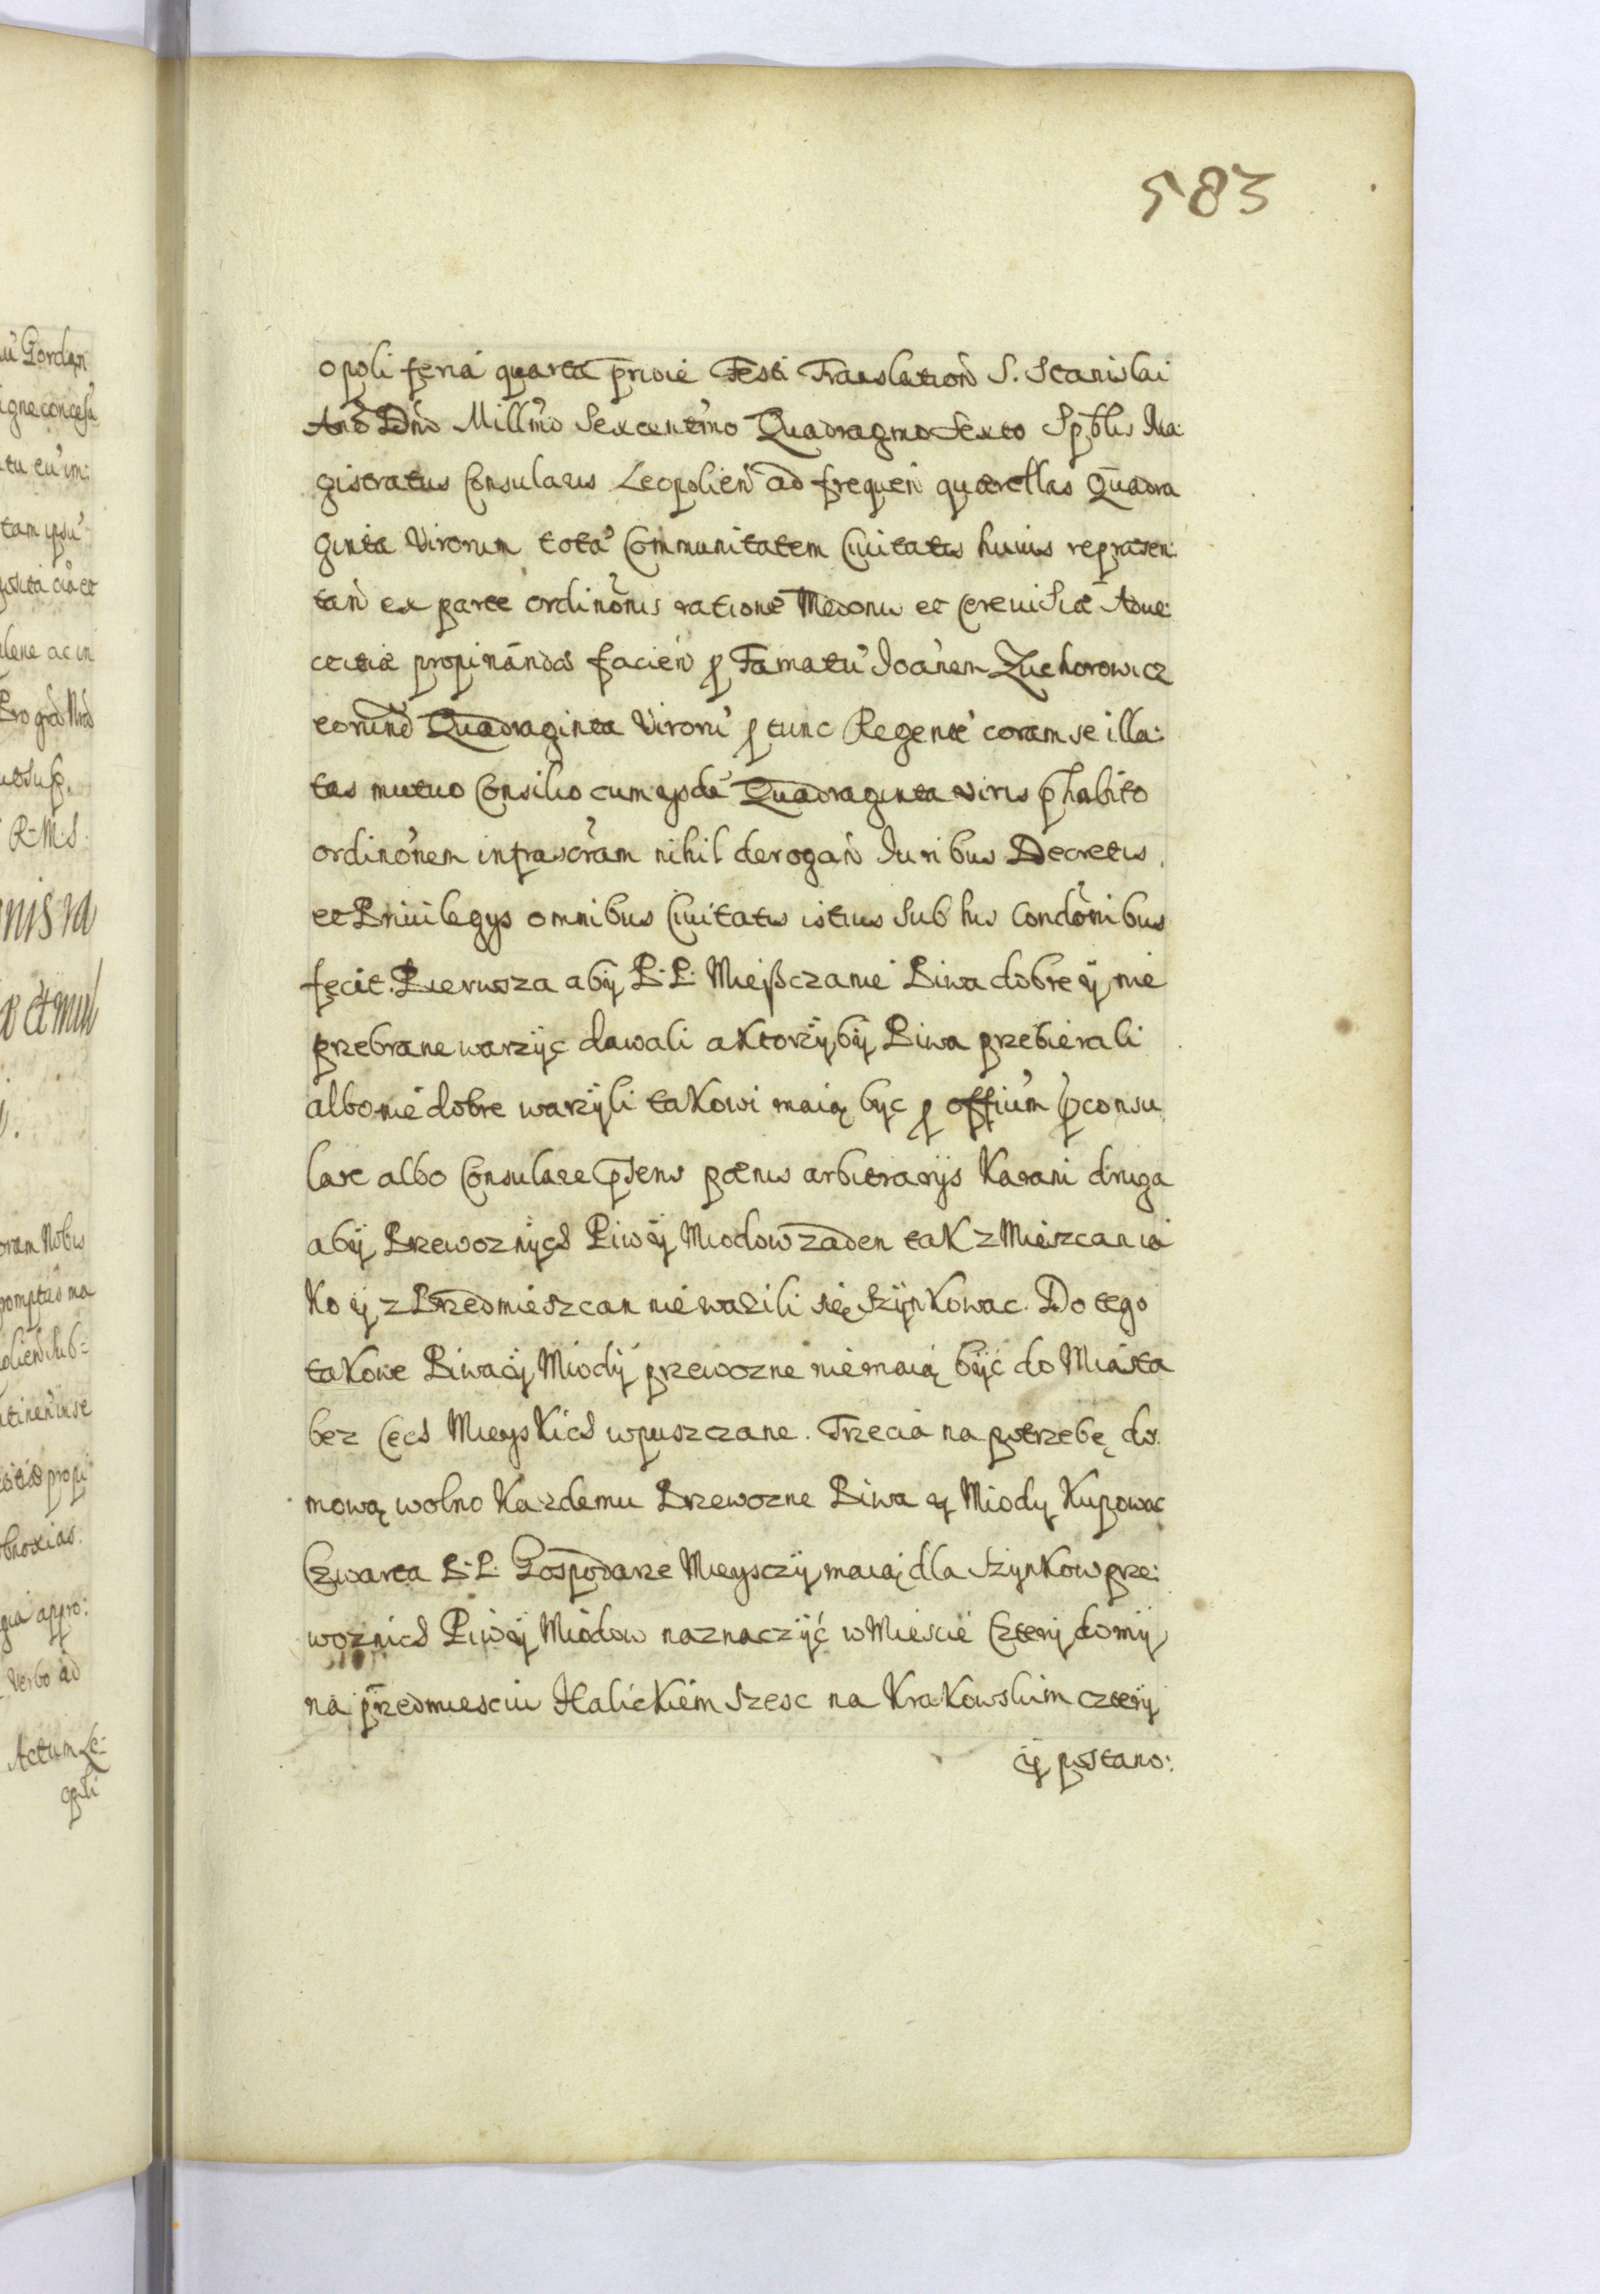 583
opoli feria quarta pridie Festi Translation̄ S. Stanislai
Anō Dnō Millm̄o Sexcentm̄o Quadragmo Sexto Spbl̄is Ma:
gistratus Consularis Leopolien̄ ad frequen̄ quærellas Quadra
ginta Virorum totā Communitatem Ciuitatis huius repræsen:
tan̄ ex parte ordinōnis ratione Medonu et Cereuisiæ Adue:
ctitiæ propinandæ facien̄ p Famatū Joānem Zuchorowicz
eorund̄ Quadraginta Virorū p tunc Regentē coram se illa:
tas mutuo Consilio cum ijsdē Quadraginta Viris p̄habito
ordinōnem infrascr̄am nihil derogan̄ Juribus Decretis
et Priuilegijs omnibus Ciuitatis istius Sub his Condōnibus
fecit. Pierwsza aby P. P. Mießczanie Piwa dobre ÿ nie
przebrane warzÿc dawali a Ktorzÿbÿ Piwa przebierali
albo nie dobre warzÿli takowi maią byc p offiūm p̄consu
lare albo Consulare p̄sens pœnis arbitrarijs Karani druga
abÿ Przewoznÿch Piw ÿ Miodow zaden tak z Mieszczan ia
Ko ÿ z Przedmieszczan nie wazili się Szÿnkowac. Do tego
takowe Piwa ÿ Miodÿ przewozne nie maią bÿć do Miasta
bez Cech Mieyskich wpuszczane. Trzecia na potrzebę do:
mową wolno Kazdemu Przewozne Piwa ÿ Miody Kupowac
Czwarta P. P. Gospodarze Mieysczÿ maią dla Szynkow prze:
woznich Piw ÿ Miodow naznaczÿć w Miescie Czterÿ domÿ
na przedmiesciu Halickiem Szesc na Krakowskim czterÿ
ÿ postano:
Actum Le-
opoli